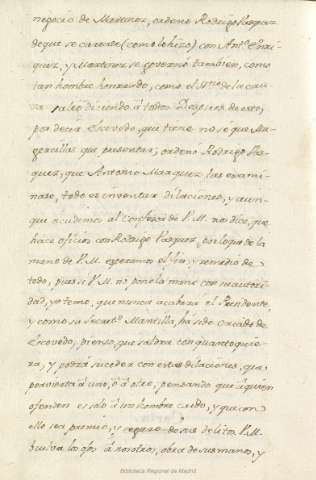 negocio de Martinez, ordeno Rodrigo Vazquez
de que se carease (como lo hizo) con Ant.º Enri-
quez, y Martinez se governó tambien, como
tan hombre honrrado, como el de la cau-
sa salio diciendo à todos. Despues de esto,
por decir Escovedo, que tiene no sé que Ma-
geracillas que presentar; ordenò Rodrigo Vaz-
quez, que Antonio Marquez las exami-
nase, todo es inventar dilaciones, y aun-
que acudimos al Confesor de V.M. nos dice, que
hace oficios con Rodrigo Vazquez, por lo que de la
mano de V.M. esperamos el fin, y remedio de
todo, pues si V.M. no pone la mano con su autori-
dad, yo temo, que nunca acabará el Presidente,
y como su Secret.º Mantilla, ha sido criado de
Escovedo, pienso, que saldra con quanto quie-
ra, y podrà suceder con estas dilaciones, que
perviertan à uno, ò à otro, pensando que à quien
ofenden es solo à un hombre caido, y que con
ello sea premio, y de sus delitos. V.M.
buelva los ojos à nosotros, obra de sus manos, y
Biblioteca Regional de Madrid